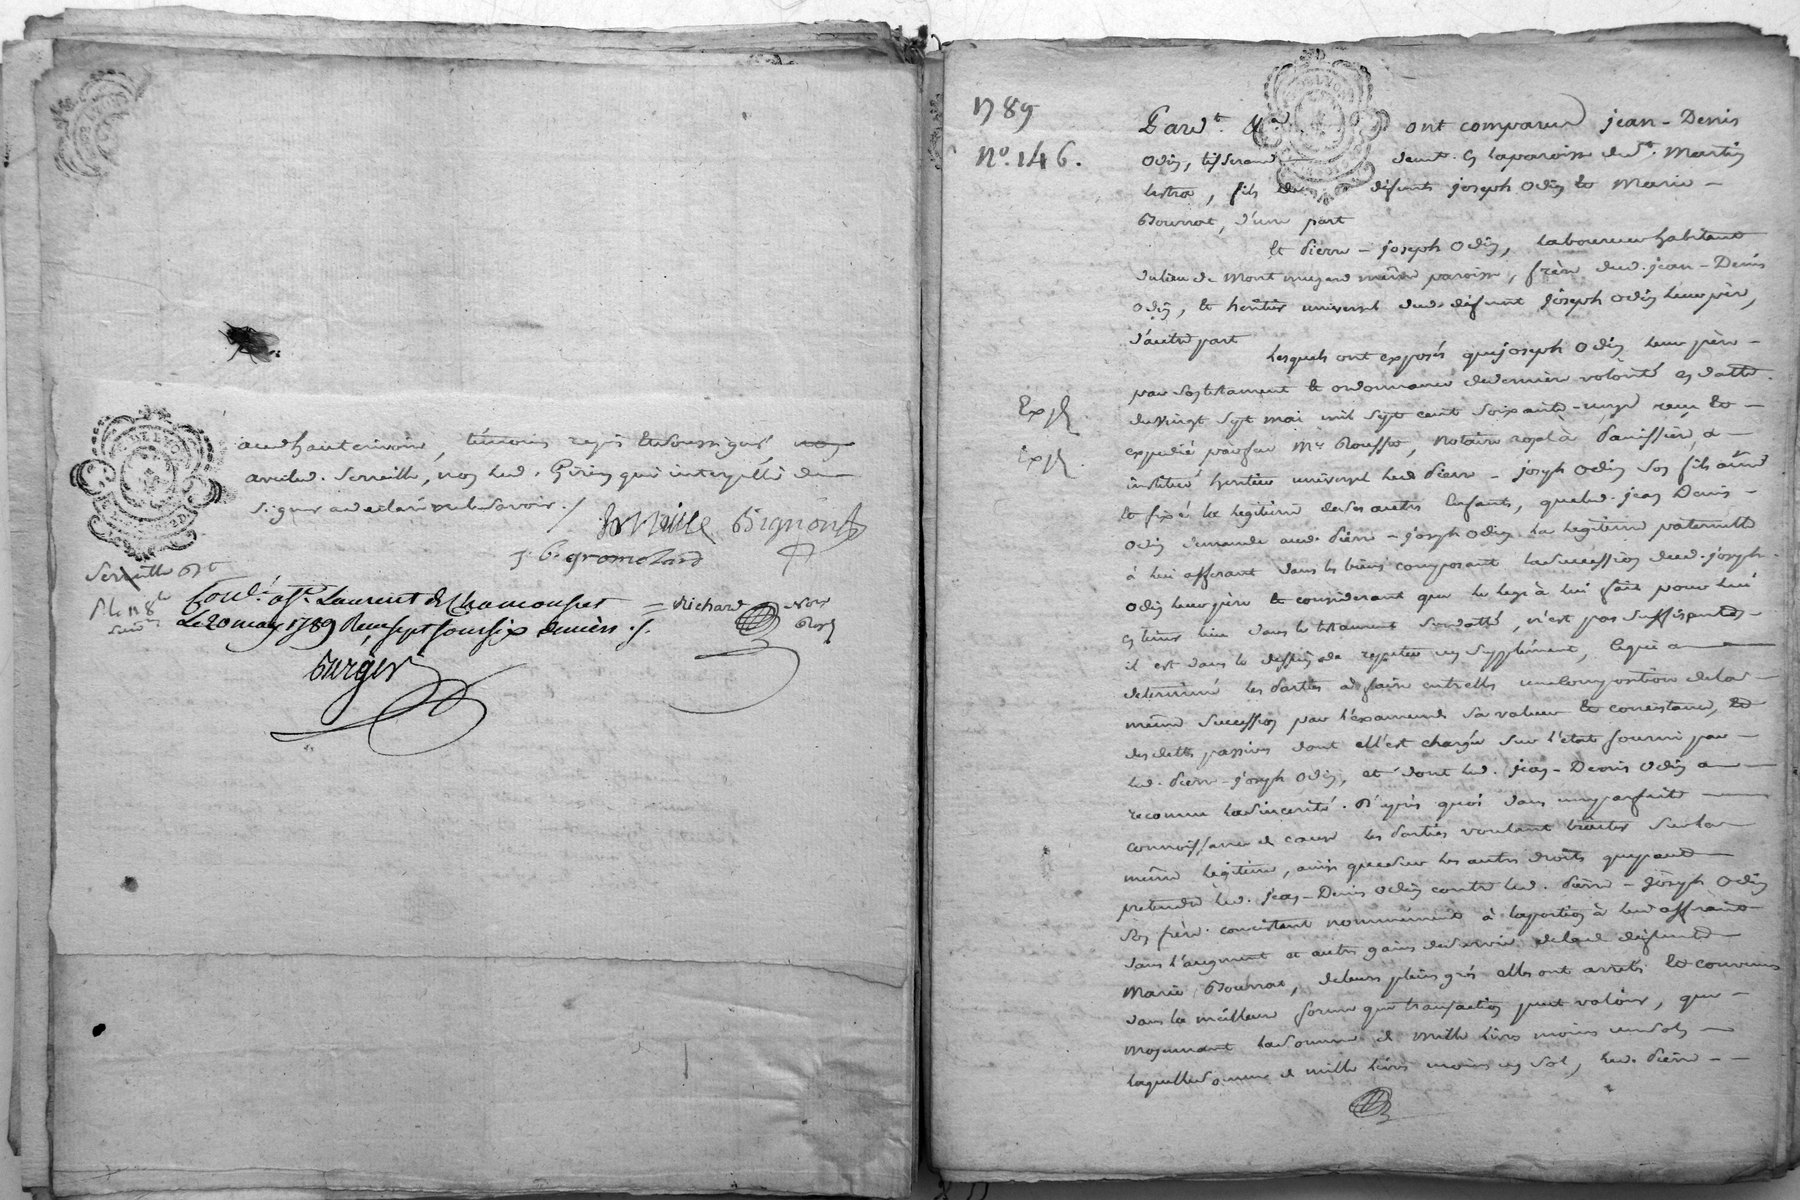 aud. hautrivoire, témoins requis & soussignés, non
avec led. Serraille, non led. Girin qui interpellé de
signer a declaré ne le savoir ./.
Bignon
J. b. gromolard
Serraille
Conlé. à St. Laurent de Chamousset
Le 20 may 1789 Reçu sept sous six deniers ./.
Richard
Burger
1789
N.o 146.
Pardt. ont comparu jean-Denis
Odin, tisserand demt. en la paroisse de St. Martin
lestra, fils de défunts joseph Odin & Marie
Bournat, d'une part
Et Pierre-joseph Odin, laboureur habitant
du lieu de même paroisse, frère dud. jean-Denis
Odin, & héritier universel dud. défunt joseph Odin leur père,
d'autre part
Lesquels ont exposés que joseph Odin leur père
par son testament & ordonnance de dernière volonté en datte
Exp.
du vingt sept mai mil sept cent soixante-onze reçu &
Exp.
expedié par feu Me. Rousset, notaire royal à Panissière, a
institué héritier universel led. Pierre-joseph Odin son fils aîné
& fixé la légitime de ses autres Enfants, que led. jean Denis
Odin demande aud. Pierre-joseph Odin la légitime paternelle
à lui afferant dans les biens composant la succession dud. joseph
Odin leur père & considerant que le legs à lui fait pour lui
en tenir lieu dans le testament susdatté, n'est pas suffisant
il est dans le dessein de repeter un supplément, ce qui a
determiné les Parties à faire entr'elles une composition de la
même succession par l'examen de sa valeur & consistance, &
des dettes passives dont elle est chargée sur l'état fourni par
led. Pierre-joseph Odin, et dont led. jean-Denis Odin a
reconnu la sincerité. D'après quoi dans une parfaite
connoissance de cause les Parties voulant traiter sur la
même légitime, ainsi que sur les autres droits que peut
pretendre led. jean-Denis Odin contre led. Pierre-joseph Odin
son frère consistant nommément à la portion à lui afferante
dans l'augment et autres gains de survie de lad. défunte
Marie Bournat, de leurs pleins grés elles ont arretés & convenus
dans la meilleure forme que transaction peut valoir, que
moyennant la somme de mille livres moins un sol,
laquelle somme de mille livres moins un sol, led. Pierre